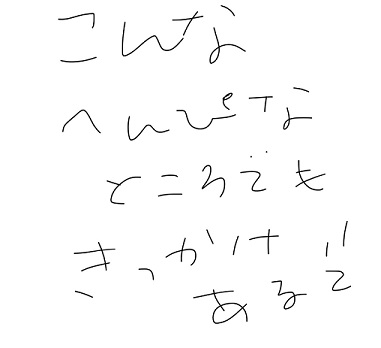 こんな
へんぴな
ところでも
きっかけ
あるぞ